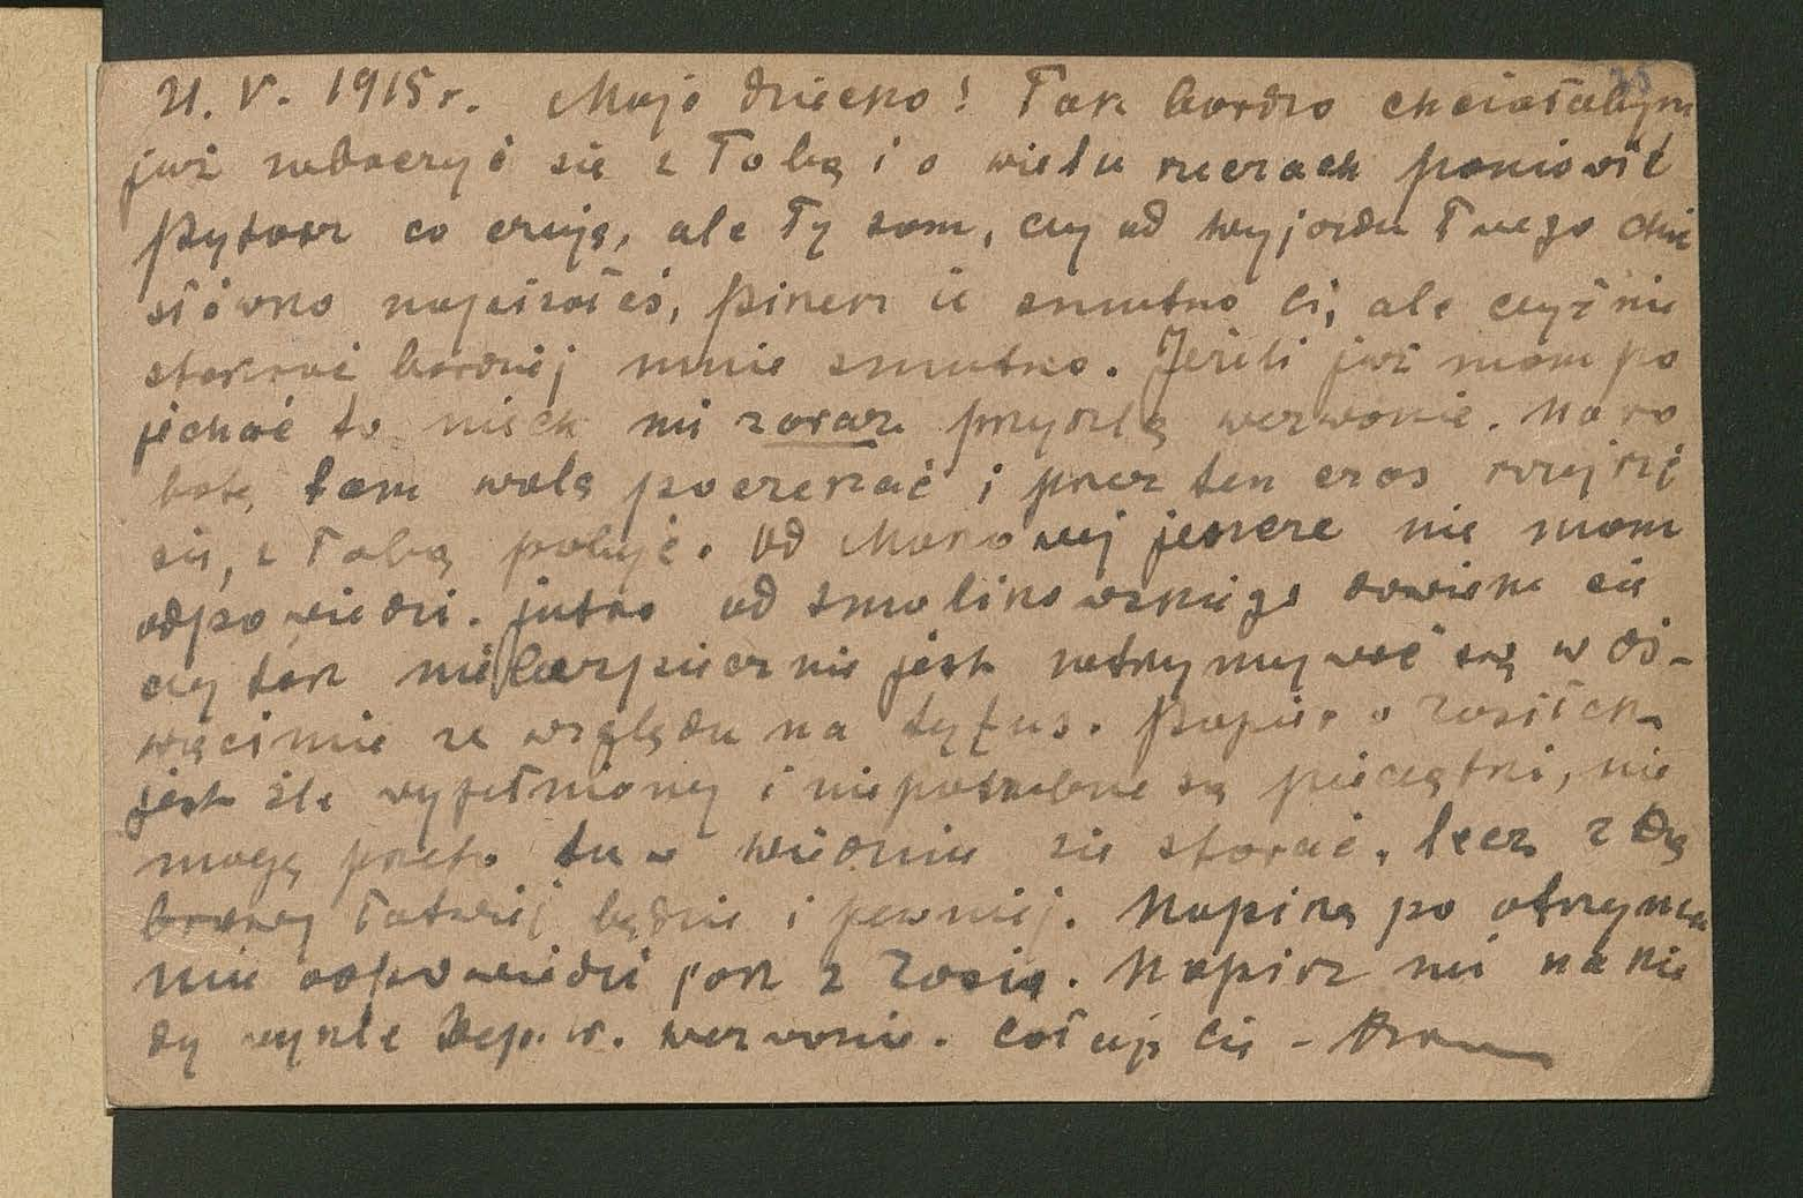 21. V. 1915 r. Moje dziecko! Tak bardzo chciałabym
już zobaczyć się z Tobą i o wielu rzeczach pomówić
Pytasz co czuję, ale Ty sam, czy od wyjazdu Twego choć
słówko napisałeś, piszesz że smutno Ci, ale czyż nie
stokroć bardziej mnie smutno. Jeżeli już mam po
jechać to niech mi zaraz przyszlą wezwanie. Na ro
botę tam wolę poczekać i przez ten czas rozejrzę
się, z Tobą pobyć. Od Marowej jeszcze nie mam
odpowiedzi. jutro od Smolikowskiego dowiem się
czy tak niebezpiecznie jest zatrzymywać się w Oś-
więcimie ze względu na tyfus. Papier o zasiłek
jest źle wypełniony i niepotrzebne są pieczątki, nie
mogę przeto tu w Wiedniu się starać, lecz z Dą
browy łatwiej będzie i pewniej. Napiszę po otrzyma
niu odpowiedzi jak z Zosią. Napisz mi na kie
dy wyśle Dep. W. wezwanie. Całuję Cię -